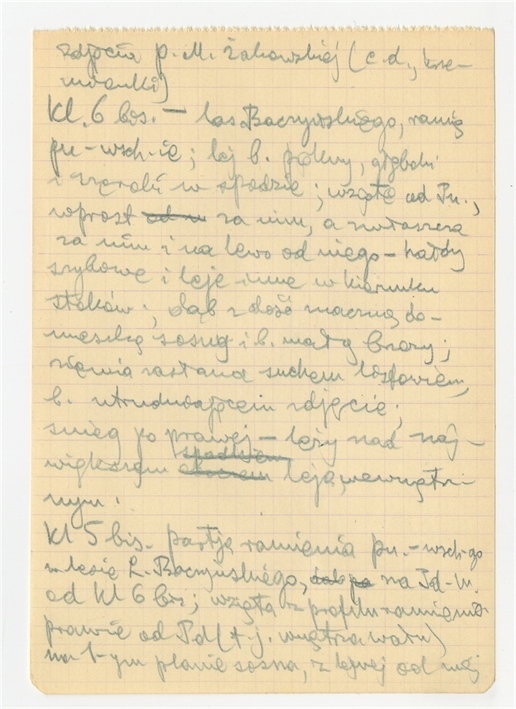 zdjęcia p. M. Żakowskiej (c.d., krze-
mionki)
Kl. 6 bis. – las Baczyńskiego, ramię
pn-wsch-ie; lej b. piękny, głęboki
i szeroki w spodzie; wzgłę od Pn.,
wprost od n za nim, a zwłaszcza
za nim i na lewo od niego – hałdy
szybowe i leje inne w kierunku
stoków; dąb z dość znaczną do-
mieszką sosny i b. mały brzozy;
ziemia zasłana suchem listowiem,
b. utrudniającem zdjęcie;
śnieg po prawej – leży nad naj-
większym spodkiem leja wewnętrz-
nym.
Kl 5 bis. partja ramienia pn.-wsch-go
w lesie L. Baczyńskiego, na Pd-W.
od Kl 6 bis; wzgłą z profilu ramienia
prawie od Pd (t.j. wnętrza wału)
na 1-ym planie sosna, z lewej od niej